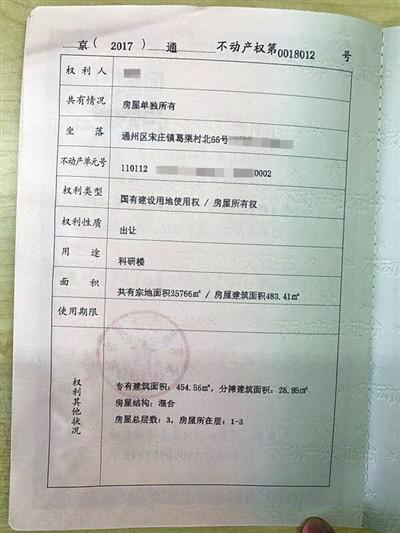 京(2017)通 不动产权第0018012号
权利人
共有情况 房屋单独所有
坐落 通州区宋庄镇葛渠村北55号
不动产单元号 110112 0002
权利类型 国有建设用地使用权 / 房屋所有权
权利性质 出让
用途 科研楼
面积 共有宗地面积35766㎡ / 房屋建筑面积483.41㎡
使用期限
权利其他状况
专有建筑面积：454.56㎡，分摊建筑面积：28.85㎡
房屋结构：混合
房屋总层数：3，房屋所在层：1-3